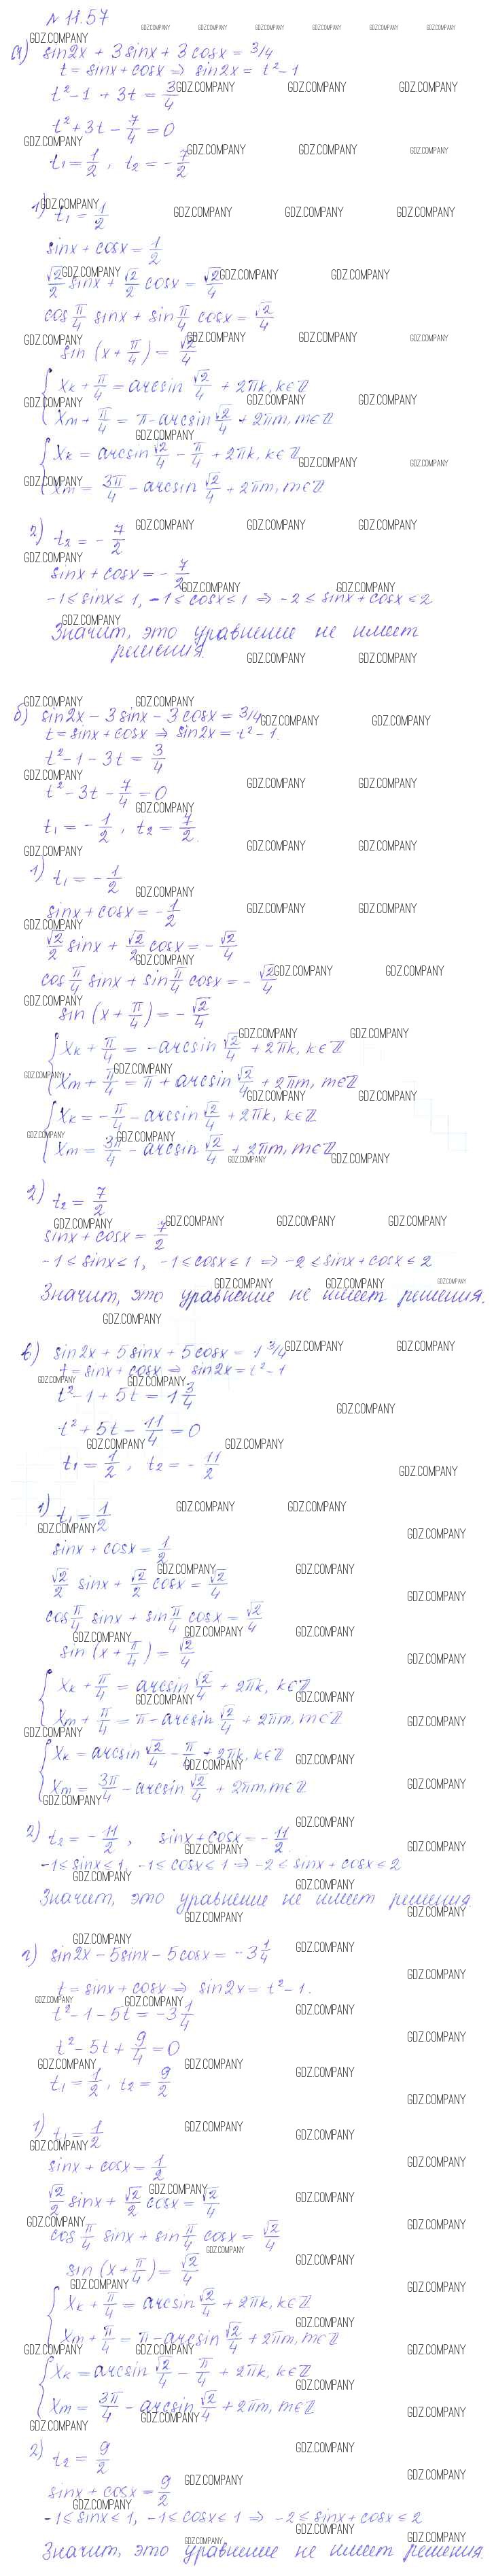 N 11.57
а) sin2x + 3sinx + 3cosx = 3/4
t = sinx + cosx ⇒ sin2x = t² - 1
t² - 1 + 3t = 3/4
t² + 3t - 7/4 = 0
t₁ = 1/2, t₂ = -7/2
1) t₁ = 1/2
sinx + cosx = 1/2
√2/2 sinx + √2/2 cosx = √2/4
cos π/4 sinx + sin π/4 cosx = √2/4
sin (x + π/4) = √2/4
{ xₖ + π/4 = arcsin √2/4 + 2πk, k∈Z
xₘ + π/4 = π - arcsin √2/4 + 2πm, m∈Z
{ xₖ = arcsin √2/4 - π/4 + 2πk, k∈Z
xₘ = 3π/4 - arcsin √2/4 + 2πm, m∈Z
2) t₂ = -7/2
sinx + cosx = -7/2
-1 ≤ sinx ≤ 1, -1 ≤ cosx ≤ 1 ⇒ -2 ≤ sinx + cosx ≤ 2
Значит, это уравнение не имеет
решения.
б) sin2x - 3sinx - 3cosx = 3/4
t = sinx + cosx ⇒ sin2x = t² - 1.
t² - 1 - 3t = 3/4
t² - 3t - 7/4 = 0
t₁ = -1/2, t₂ = 7/2.
1) t₁ = -1/2
sinx + cosx = -1/2
√2/2 sinx + √2/2 cosx = -√2/4
cos π/4 sinx + sin π/4 cosx = -√2/4
sin (x + π/4) = -√2/4
{ xₖ + π/4 = -arcsin √2/4 + 2πk, k∈Z
xₘ + π/4 = π + arcsin √2/4 + 2πm, m∈Z
{ xₖ = -π/4 - arcsin √2/4 + 2πk, k∈Z
xₘ = 3π/4 - arcsin √2/4 + 2πm, m∈Z
2) t₂ = 7/2
sinx + cosx = 7/2
-1 ≤ sinx ≤ 1, -1 ≤ cosx ≤ 1 ⇒ -2 ≤ sinx + cosx ≤ 2
Значит, это уравнение не имеет решения.
в) sin2x + 5sinx + 5cosx = 1 3/4
t = sinx + cosx ⇒ sin2x = t² - 1
t² - 1 + 5t = 1 3/4
t² + 5t - 11/4 = 0
t₁ = 1/2, t₂ = -11/2
1) t₁ = 1/2
sinx + cosx = 1/2
√2/2 sinx + √2/2 cosx = √2/4
cos π/4 sinx + sin π/4 cosx = √2/4
sin (x + π/4) = √2/4
{ xₖ + π/4 = arcsin √2/4 + 2πk, k∈Z
xₘ + π/4 = π - arcsin √2/4 + 2πm, m∈Z
{ xₖ = arcsin √2/4 - π/4 + 2πk, k∈Z
xₘ = 3π/4 - arcsin √2/4 + 2πm, m∈Z
2) t₂ = -11/2, sinx + cosx = -11/2.
-1 ≤ sinx ≤ 1, -1 ≤ cosx ≤ 1 ⇒ -2 ≤ sinx + cosx ≤ 2
Значит, это уравнение не имеет решения
г) sin2x - 5sinx - 5cosx = -3 1/4
t = sinx + cosx ⇒ sin2x = t² - 1.
t² - 1 - 5t = -3 1/4
t² - 5t + 9/4 = 0
t₁ = 1/2, t₂ = 9/2
1) t₁ = 1/2
sinx + cosx = 1/2
√2/2 sinx + √2/2 cosx = √2/4
cos π/4 sinx + sin π/4 cosx = √2/4
sin (x + π/4) = √2/4
{ xₖ + π/4 = arcsin √2/4 + 2πk, k∈Z
xₘ + π/4 = π - arcsin √2/4 + 2πm, m∈Z
{ xₖ = arcsin √2/4 - π/4 + 2πk, k∈Z
xₘ = 3π/4 - arcsin √2/4 + 2πm, m∈Z
2) t₂ = 9/2
sinx + cosx = 9/2
-1 ≤ sinx ≤ 1, -1 ≤ cosx ≤ 1 ⇒ -2 ≤ sinx + cosx ≤ 2
Значит, это уравнение не имеет решения.
GDZ.COMPANY